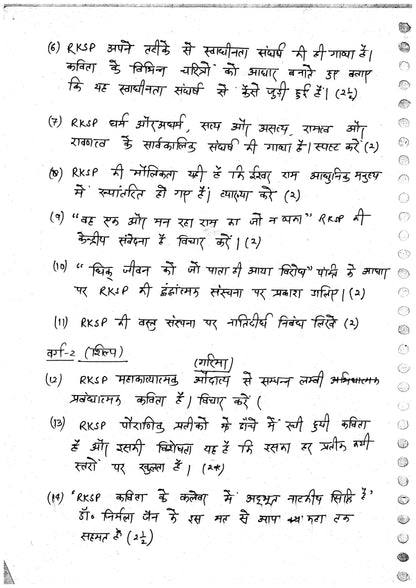 (6) RKSP अपने तरीके से स्वाधीनता संघर्ष की ही गाथा है।
कविता के विभिन्न चरित्रों को आधार बनाते हुए बताएं
कि यह स्वाधीनता संघर्ष से कैसे जुड़ी हुई है। (2½)
(7) RKSP धर्म और अधर्म, सत्य और असत्य, रामत्व और
रावणत्व के सार्वकालिक संघर्ष की गाथा है। स्पष्ट करें (2)
(8) RKSP की मौलिकता यही है कि ईश्वर राम आधुनिक मनुष्य
में रूपांतरित हो गए हैं। व्याख्या करें (2)
(9) "वह एक और मन रहा राम का जो न थका" RKSP की
केन्द्रीय संवेदना है विचार करें। (2)
(10) "धिक् जीवन को जो पाता ही आया विरोध" पंक्ति के आधार
पर RKSP की द्वंद्वात्मक संरचना पर प्रकाश डालिए। (2)
(11) RKSP की वस्तु संरचना पर नातिदीर्घ निबंध लिखें (2)
वर्ग-2 (शिल्प)
(गरिमा)
(12) RKSP महाकाव्यात्मक औदात्य से सम्पन्न लम्बी
प्रबंधात्मक कविता है। विचार करें (
(13) RKSP पौराणिक प्रतीकों के ढांचे में रची हुयी कविता
है और इसकी विशेषता यह है कि इसका हर प्रतीक कयी
स्तरों पर खुलता है। (2*)
(14) 'RKSP कविता के कलेवर में अद्भुत नाटकीय सिद्धि है'
डॉ॰ निर्मला जैन के इस मत से आप कहा तक
सहमत हैं (2½)